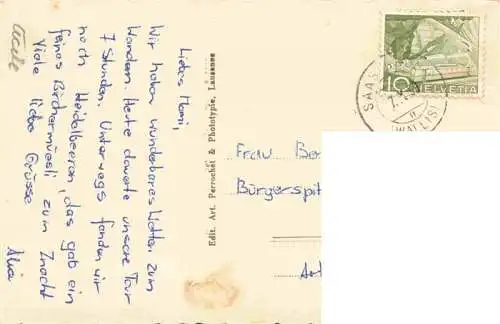 Liebes Mami,
Wir haben wunderbares Wetter zum
Wandern. Heute dauerte unsere Tour
7 Stunden. Unterwegs fanden wir
noch Heidelbeeren, das gab ein
feines Birchermüesli zum Znacht
Viele liebe Grüsse
Edit. Art. Perrochet & Phototypie, Lausanne
10
HELVETIA
SAAS
(WALLIS)
Frau Be
Bürgerspit